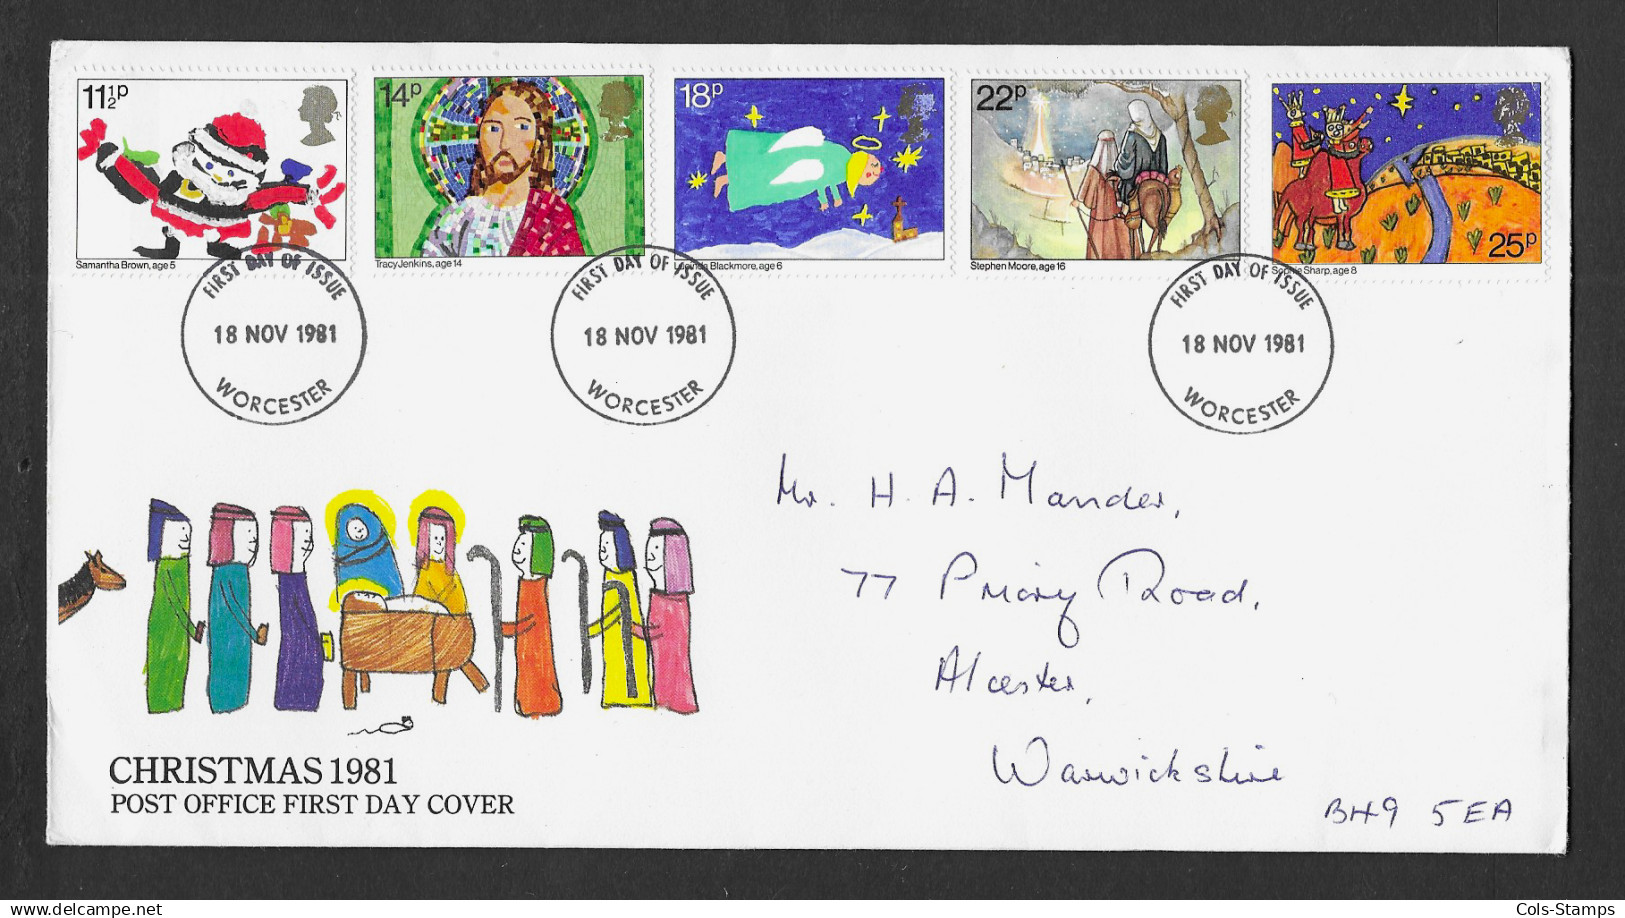 11½p
14p
18p
22p
25p
Samantha Brown, age 5
Tracy Jenkins, age 14
Lucinda Blackmore, age 6
Stephen Moore, age 16
Sophie Sharp, age 8
FIRST DAY OF ISSUE
18 NOV 1981
WORCESTER
FIRST DAY OF ISSUE
18 NOV 1981
WORCESTER
FIRST DAY OF ISSUE
18 NOV 1981
WORCESTER
Mr. H. A. Mander,
77 Priory Road,
Alcester,
Warwickshire
BH9 5EA
CHRISTMAS 1981
POST OFFICE FIRST DAY COVER
delcampe.net
Cols-Stamps